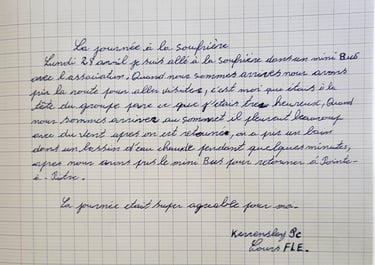 La journée à la soufrière
Lundi 29 avril je suis allé à la soufrière dans un mini Bus
avec l'association. Quand nous sommes arrivés nous avons
pris la route pour aller visiter, c'est moi que étais à la
tête du groupe parce que j'étais très heureux, Quand
nous sommes arrivés au sommet il pleuvait beaucoup
avec du vent apres on est retourné, on a pris un bain
dans un bassin d'eau chaude pendant quelques minutes,
apres nous avons pris le mini Bus pour retourner à Pointe-
à-Pitre.
La journée etait super agréable pour moi.
Kervensley Pc
Cours FLE.